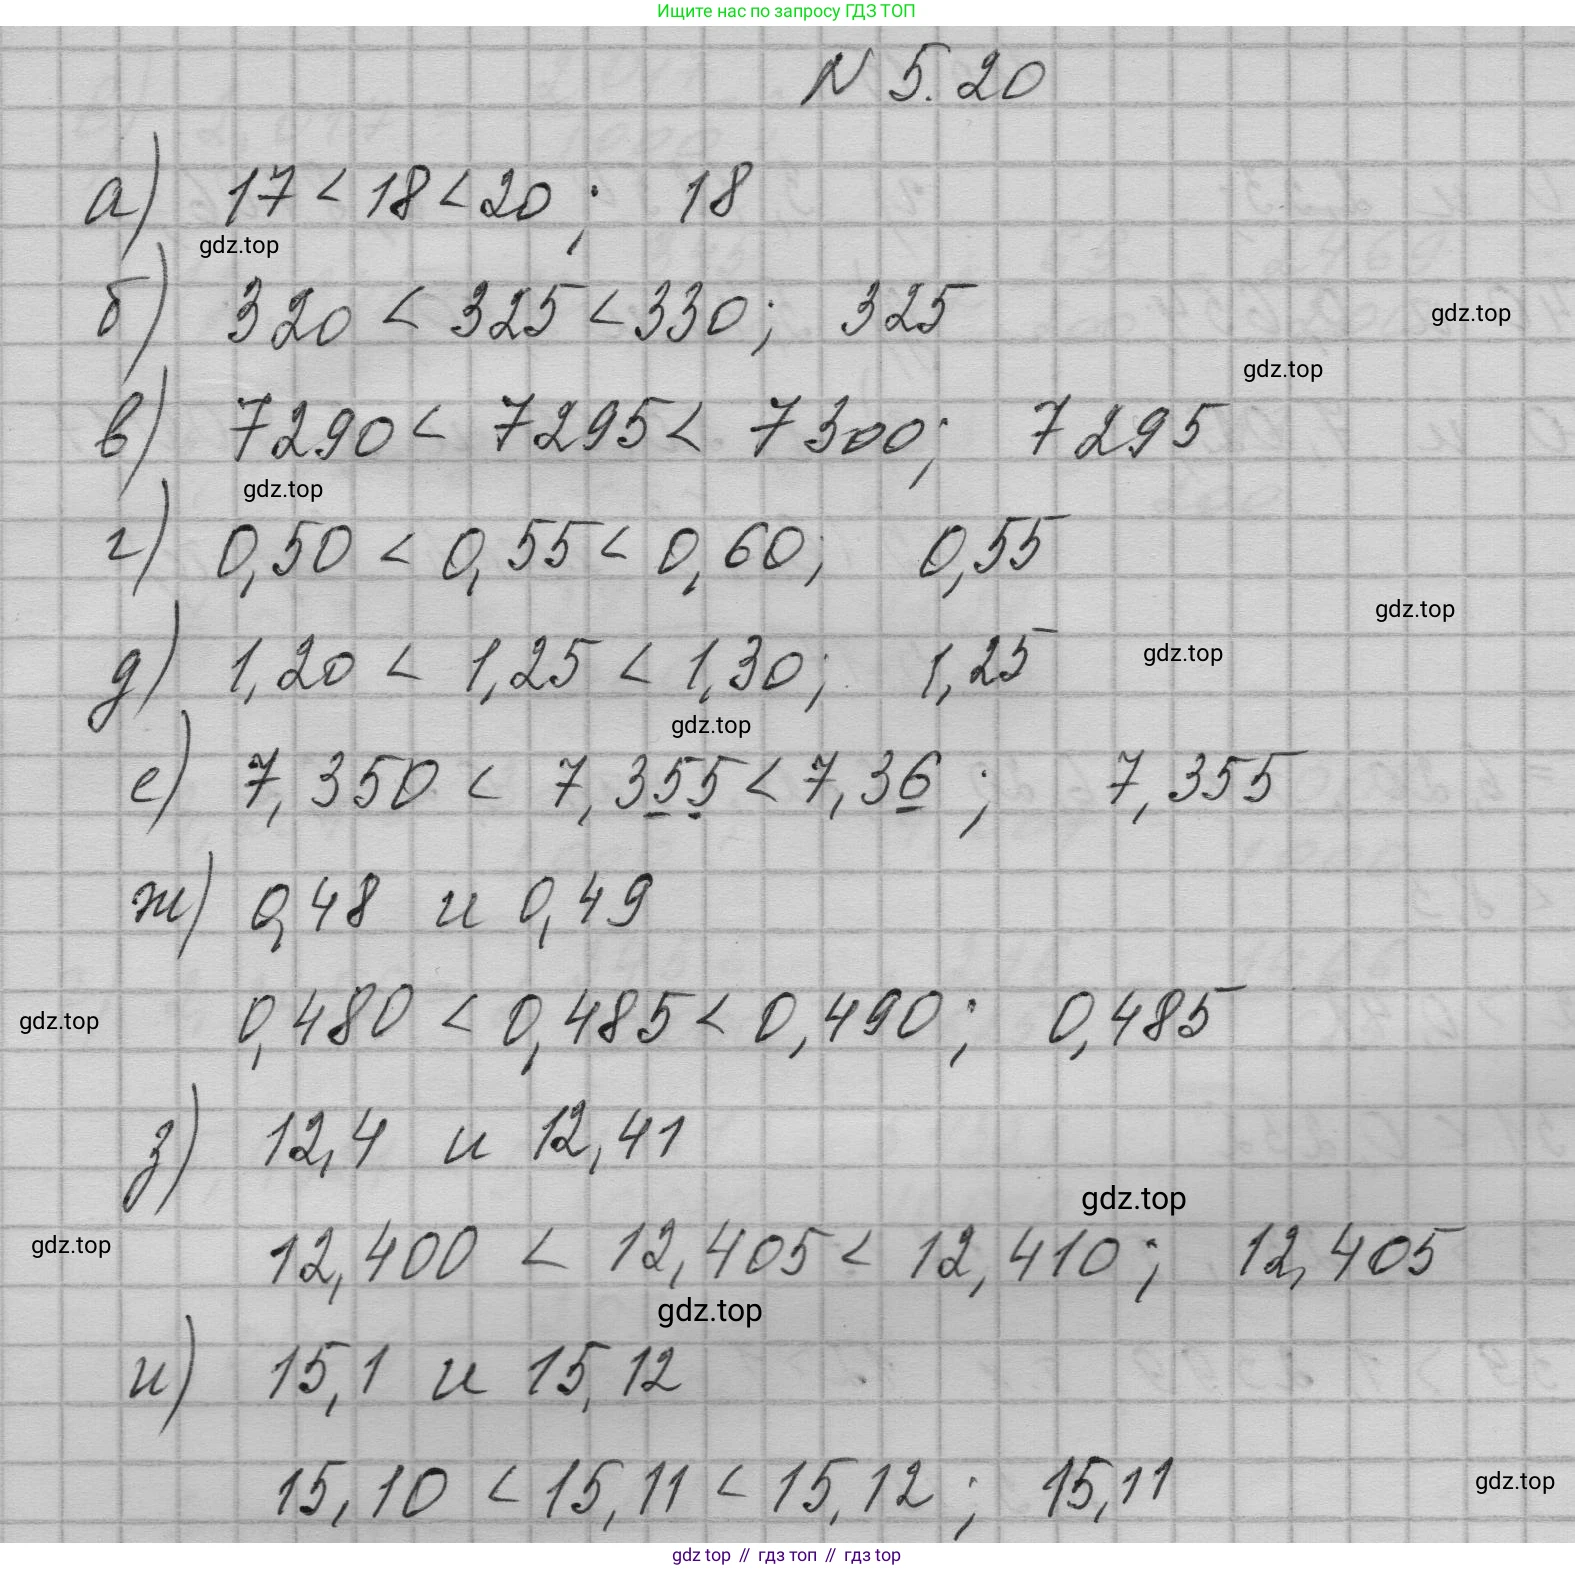 Ищите нас по запросу ГДЗ ТОП
N 5.20
а) 17 < 18 < 20 ; 18
gdz.top
б) 320 < 325 < 330; 325
gdz.top
gdz.top
в) 7290 < 7295 < 7300; 7295
gdz.top
г) 0,50 < 0,55 < 0,60; 0,55
gdz.top
д) 1,20 < 1,25 < 1,30; 1,25
gdz.top
gdz.top
е) 7,350 < 7,355 < 7,36 ; 7,355
ж) 0,48 и 0,49
0,480 < 0,485 < 0,490 ; 0,485
gdz.top
з) 12,4 и 12,41
gdz.top
12,400 < 12,405 < 12,410 ; 12,405
gdz.top
gdz.top
и) 15,1 и 15,12
15,10 < 15,11 < 15,12 ; 15,11
gdz.top
gdz top // гдз топ // гдз top